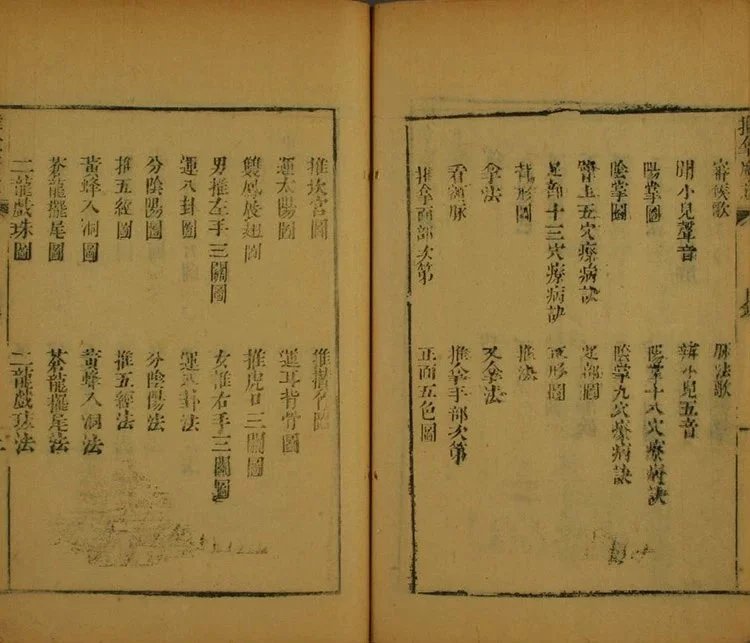 審候歌 脉法歌
明小兒聲音 辨小兒五音
陽掌圖 陽掌十八穴療病訣
陰掌圖 陰掌九穴療病訣
臂上五穴療病訣 足部圖
足部十三穴療病訣 正形圖
背形圖 推法
拿法 又拿法
看額脉 推拿手部次第
推拿面部次第 正面五色圖
推坎宮圖 推攢竹圖
運太陽圖 運耳背骨圖
雙鳳展翅圖 推虎口三關圖
男推左手三關圖 女推右手三關圖
運八卦圖 運八卦法
分陰陽圖 分陰陽法
推五經圖 推五經法
黃蜂入洞圖 黃蜂入洞法
蒼龍擺尾圖 蒼龍擺尾法
二龍戲珠圖 二龍戲珠法